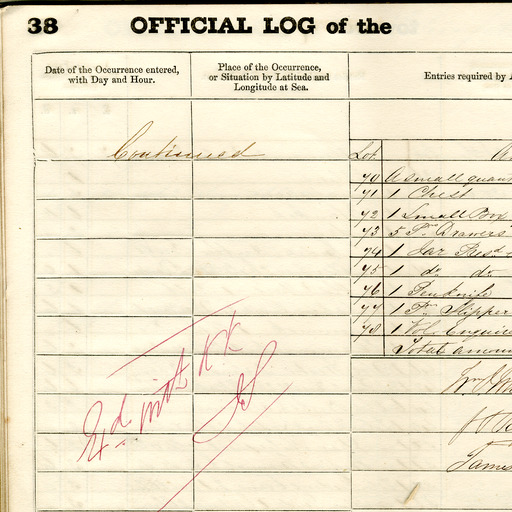 38 OFFICIAL LOG of the
Date of the Occurrence entered, with Day and Hour.
Place of the Occurrence, or Situation by Latitude and Longitude at Sea.
Entries required by
Continued
Lot
70 A small quan
71 1 Chest
72 1 Small Box
73 5 Prs Drawers
74 1 Jar Presd
75 1 do do
76 1 Penknife
77 1 Pr Slipper
78 1 Vol. Enquire
Total amoun
James